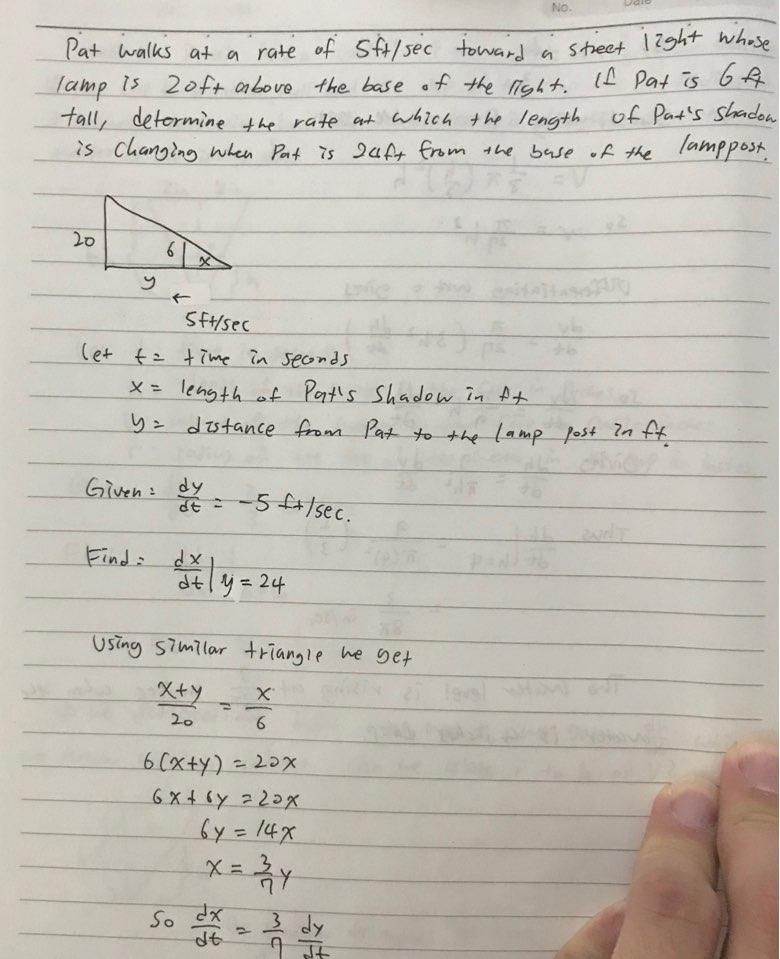 No.
Date
Pat walks at a rate of 5ft/sec toward a street light whose
lamp is 20ft above the base of the light. If Pat is 6 ft
tall, determine the rate at which the length of Pat's shadow
is changing when Pat is 24ft from the base of the lamppost.
20
6
x
y
←
5ft/sec
Let t = time in seconds
x = length of Pat's Shadow in ft
y = distance from Pat to the lamp post in ft.
Given: dy/dt = -5 ft/sec.
Find: dx/dt | y = 24
Using similar triangle we get
x+y/20 = x/6
6(x+y) = 20x
6x + 6y = 20x
6y = 14x
x = 3/7 y
So dx/dt = 3/7 dy/dt